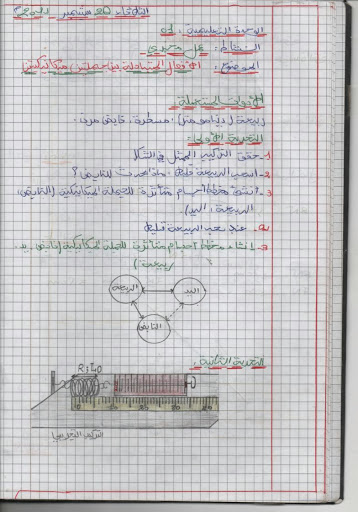 الثلاثاء
سبتمبر
النشاط: عمل مخبري
الموضوع: الأفعال المتبادلة بين جملتين ميكانيكيتين
الأدوات المستعملة
ربيعة (دينامومتر)، مسطرة، قابض مرن.
التجربة الأولى:
1- حقق التركيب الممثل في الشكل
2- اسحب الربيعة قليلا، ماذا يحدث للقابض؟
3- أنشئ مخطط أجسام متأثرة للجملة الميكانيكية (القابض،
الربيعة، اليد)
عند سحب الربيعة قليلا
3- إنشاء مخطط أجسام متأثرة للجملة الميكانيكية (قابض، يد،
ربيعة)
الربيعة
اليد
القابض
التجربة الثانية:
R:40
0 10 20 30
التركيب التجريبي